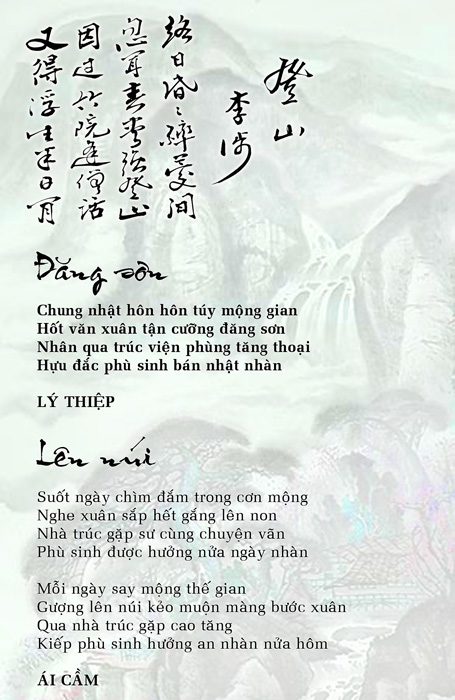 登山
李涉
終日昏〻醉夢間
忽聞春盡強登山
因過竹院逢僧話
又得浮生半日閒
Đăng sơn
Chung nhật hôn hôn túy mộng gian
Hốt văn xuân tận cưỡng đăng sơn
Nhân qua trúc viện phùng tăng thoại
Hựu đắc phù sinh bán nhật nhàn
LÝ THIỆP
Lên núi
Suốt ngày chìm đắm trong cơn mộng
Nghe xuân sắp hết gắng lên non
Nhà trúc gặp sư cùng chuyện vãn
Phù sinh được hưởng nửa ngày nhàn
Mỗi ngày say mộng thế gian
Gượng lên núi kẻo muộn màng bước xuân
Qua nhà trúc gặp cao tăng
Kiếp phù sinh hưởng an nhàn nửa hôm
ÁI CẦM